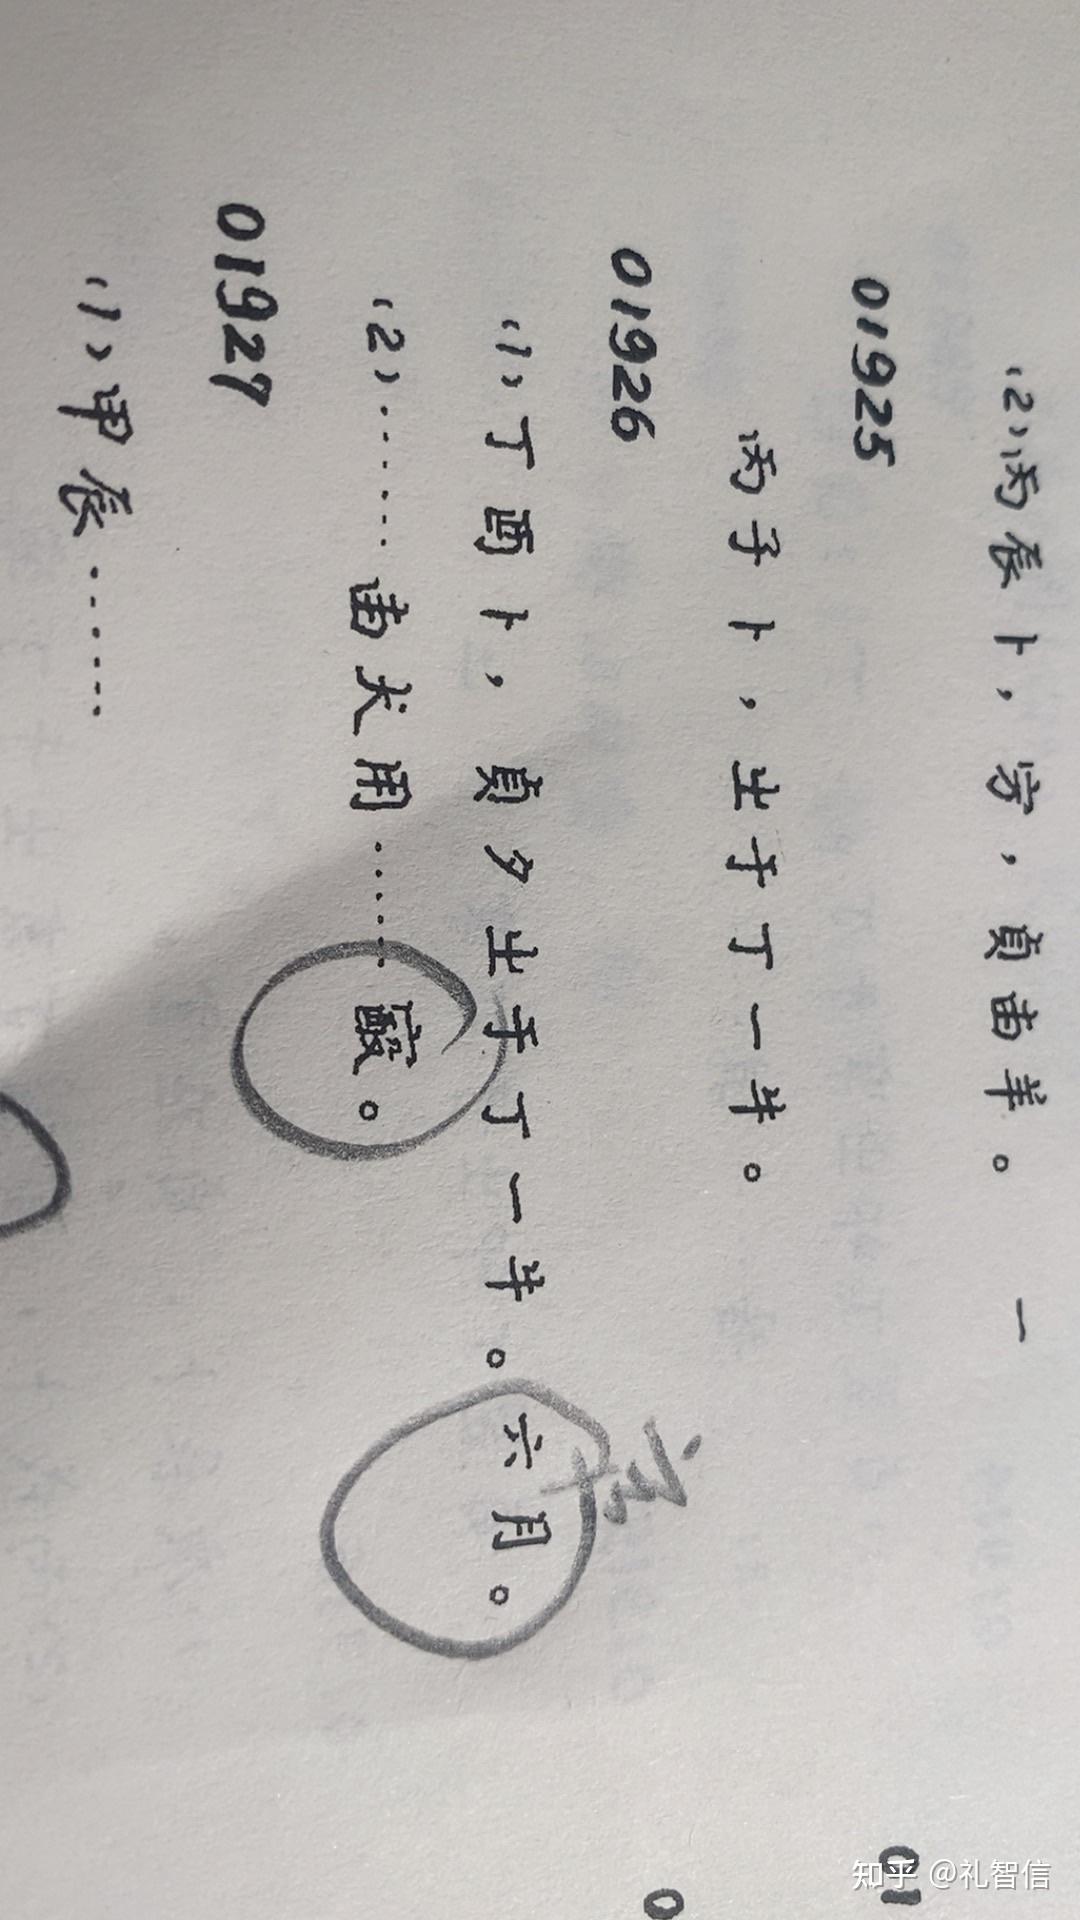 (2)丙辰卜, ,貞叀羊。 一
01925
丙子卜,㞢于丁一牛。
01926
(1)丁酉卜,貞夕㞢于丁一牛。六月。
(2)……叀犬用…… 。
01927
(1)甲辰……
01
0
知乎 @礼智信